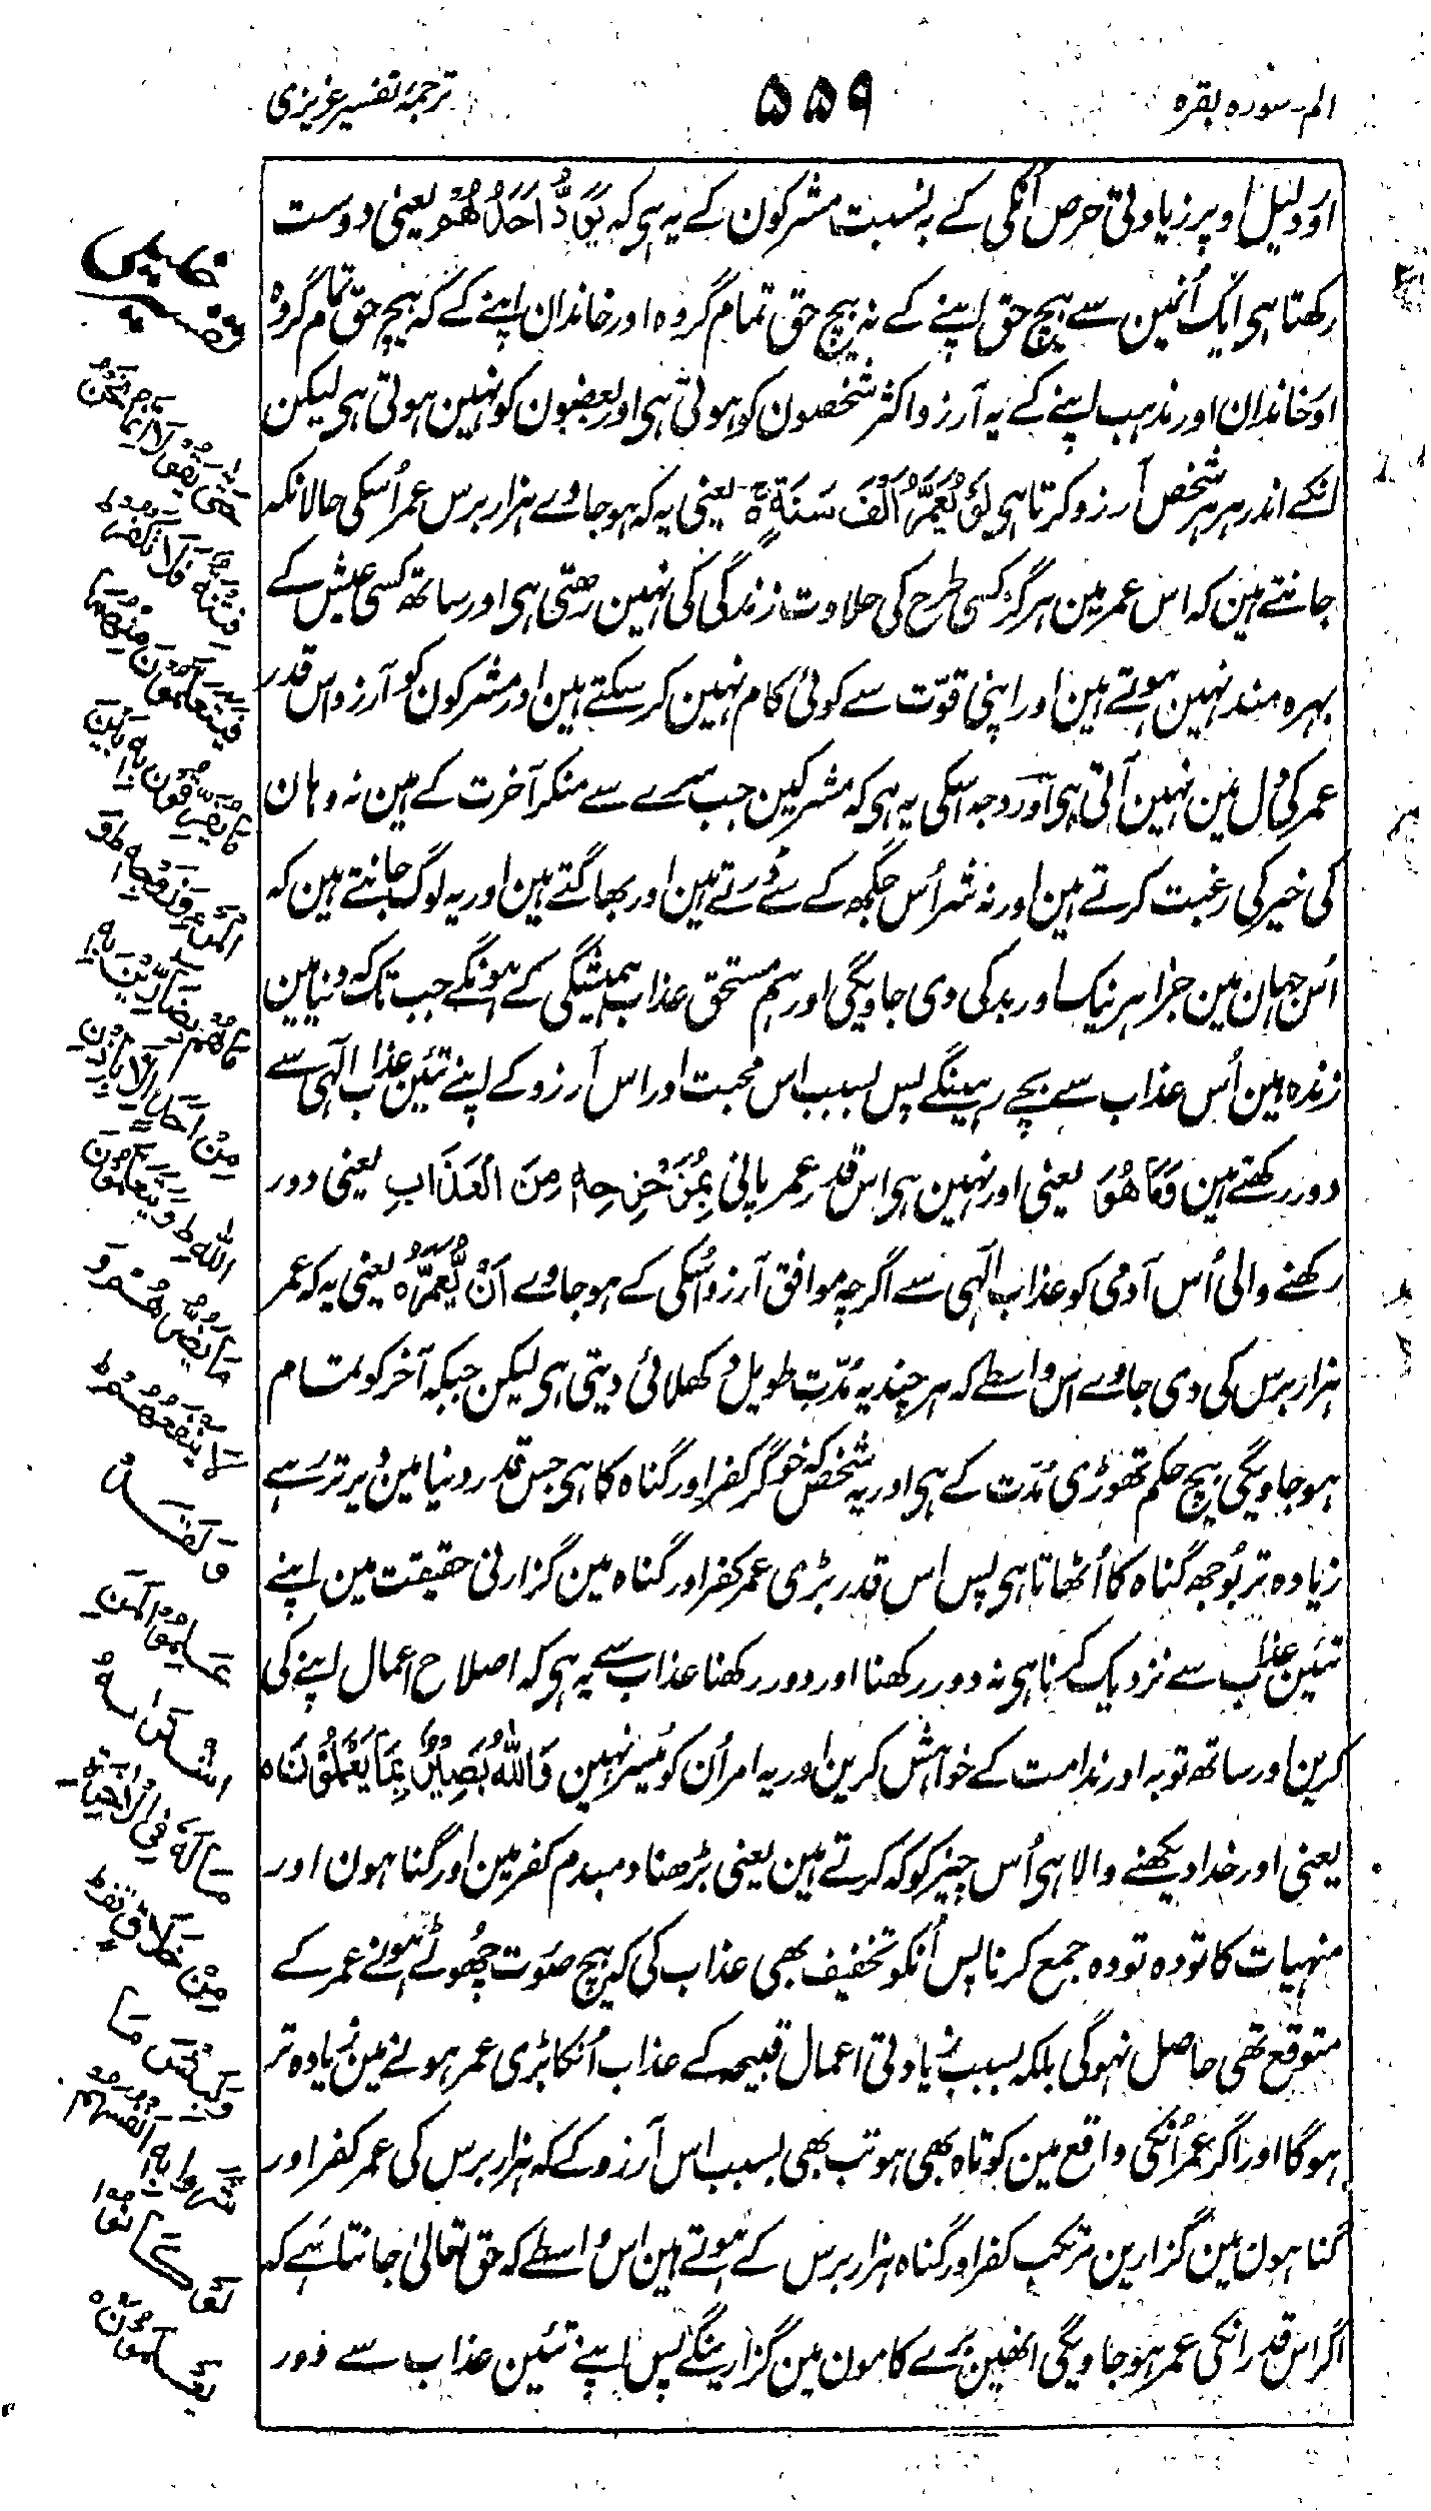 الم۔ سورہ بقرہ
۵۵۹
ترجمۂ تفسیر عزیزی
اور دلیل اوپر زیادتی حرص اُنکی کے بہ نسبت مشرکون کے یہ ہی کہ يَوَدُّ اَحَدُهُمْ یعنی دوست
رکھتا ہی ایک اُنمین سے بیچ حق اپنے کے نہ بیچ حق تمام گروہ اور خاندان اپنے کے کہ بیچ حق تمام گروہ
اور خاندان اور مذہب اپنے کے یہ آرزو اکثر شخصون کو ہوتی ہی اور بعضون کو نہین ہوتی ہی لیکن
انکے اندر ہر ہر شخص آرزو کرتا ہی لَوْ يُعَمَّرُ اَلْفَ سَنَةٍ یعنی یہ کہ ہو جاوے ہزار برس عمر اُسکی حالانکہ
جانتے ہین کہ اس عمر مین ہرگز کسی طرح کی حلاوت زندگی کی نہین رہتی ہی اور ساتھ کسی عیش کے
بہرہ مند نہین ہوتے ہین اور اپنی قوّت سے کوئی کام نہین کر سکتے ہین اور مشرکون کو آرزو اس قدر
عمر کی دل مین نہین آتی ہی اور وجہ اسکی یہ ہی کہ مشرکین جب سرے سے منکر آخرت کے ہین نہ وہان
کی خیر کی رغبت کرتے ہین اور نہ شر اُس جگہ کے سے ڈرتے ہین اور بھاگتے ہین اور یہ لوگ جانتے ہین کہ
اُس جہان مین جزا ہر نیک اور بد کی دی جاویگی اور ہم مستحق عذاب ہمیشگی کے ہونگے جب تک کہ دنیا مین
زندہ ہین اُس عذاب سے بچے رہینگے پس بسبب اس محبت اور اس آرزو کے اپنے تئین عذاب الٰہی سے
دور رکھتے ہین وَمَا هُوَ یعنی اور نہین ہی اس قدر عمر پانی بِمُزَحْزِحِهٖ مِنَ الْعَذَابِ یعنی دور
رکھنے والی اُس آدمی کو عذاب الٰہی سے اگرچہ موافق آرزو اُسکی کے ہو جاوے اَنْ يُّعَمَّرَ یعنی یہ کہ عمر
ہزار برس کی دی جاوے اس واسطے کہ ہر چند یہ مُدّت طویل دکھلائی دیتی ہی لیکن جبکہ آخر کو تمام
ہو جاویگی بیچ حکم تھوڑی مُدّت کے ہی اور یہ شخص کہ خوگر کفر اور گناہ کا ہی جس قدر دنیا مین دیر تر رہے
زیادہ تر بوجھ گناہ کا اُٹھاتا ہی پس اس قدر بڑی عمر کفر اور گناہ مین گزارنی حقیقت مین اپنے
تئین عذاب سے نزدیک کرنا ہی نہ دور رکھنا اور دور رکھنا عذاب سے یہ ہی کہ اصلاح اعمال اپنے کی
کرین اور ساتھ توبہ اور ندامت کے خواہش کرین اور یہ امر اُن کو میسر نہین وَاللّٰهُ بَصِيْرٌ بِمَا يَعْمَلُوْنَ
یعنی اور خدا دیکھنے والا ہی اُس چیز کو کہ کرتے ہین یعنی بڑھنا دمبدم کفر مین اور گناہون اور
منہیات کا تودہ تودہ جمع کرنا پس اُنکو تخفیف بھی عذاب کی کہ بیچ صورت چھوٹے ہونے عمر کے
متوقع تھی حاصل نہوگی بلکہ بسبب زیادتی اعمال قبیحہ کے عذاب اُنکا بڑی عمر ہونے مین زیادہ تر
ہوگا اور اگر عمر اُنکی واقع مین کوتاہ بھی ہو تب بھی بسبب اس آرزو کے کہ ہزار برس کی عمر کفر اور
گناہون مین گزارین مرتکب کفر اور گناہ ہزار برس کے ہوتے ہین اس واسطے کہ حق تعالیٰ جانتا ہے کہ
اگر اس قدر انکی عمر ہو جاویگی انھین بُرے کامون مین گزارینگے پس اپنے تئین عذاب سے دور
حَتّٰى يَقُوْلَا اِنَّمَا نَحْنُ
فِتْنَةٌ فَلَا تَكْفُرْ ط
فَيَتَعَلَّمُوْنَ مِنْهُمَا
مَا يُفَرِّقُوْنَ بِهٖ بَيْنَ
الْمَرْءِ وَزَوْجِهٖ ط وَ
مَا هُمْ بِضَآرِّيْنَ بِهٖ
مِنْ اَحَدٍ اِلَّا بِاِذْنِ
اللّٰهِ ط وَيَتَعَلَّمُوْنَ
مَا يَضُرُّهُمْ وَ
لَا يَنْفَعُهُمْ ط
وَلَقَدْ
عَلِمُوْا لَمَنِ
اشْتَرٰىهُ
مَا لَهٗ فِى الْاٰخِرَةِ
مِنْ خَلَاقٍ قف ط
وَلَبِئْسَ مَا
شَرَوْا بِهٖٓ اَنْفُسَهُمْ
لَوْ كَانُوْا
يَعْلَمُوْنَ ہ